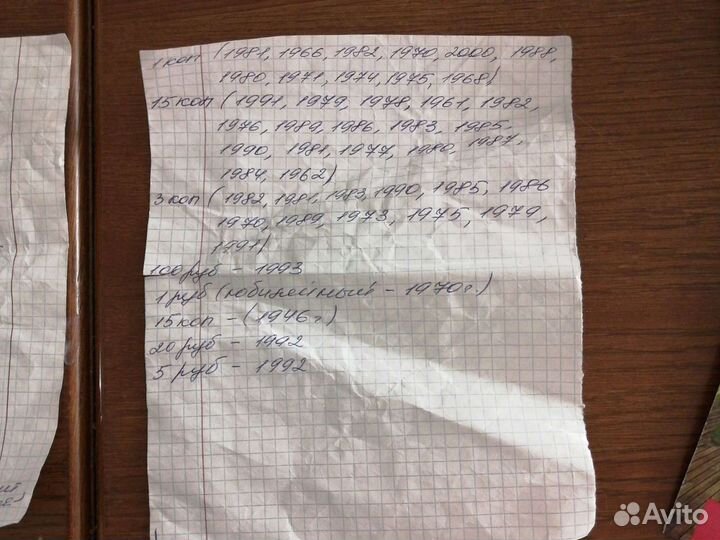 1 коп (1981, 1966, 1982, 1970, 2000, 1988,
1980, 1971, 1974, 1975, 1968)
15 коп (1991, 1979, 1978, 1961, 1982,
1976, 1989, 1986, 1983, 1985,
1990, 1981, 1977, 1980, 1987,
1984, 1962)
3 коп (1982, 1981, 1983, 1990, 1985, 1986
1970, 1989, 1973, 1975, 1979,
1991)
100 руб - 1993
1 руб (юбилейный - 1970г.)
15 коп - (1946г.)
20 руб - 1992
5 руб - 1992
Avito